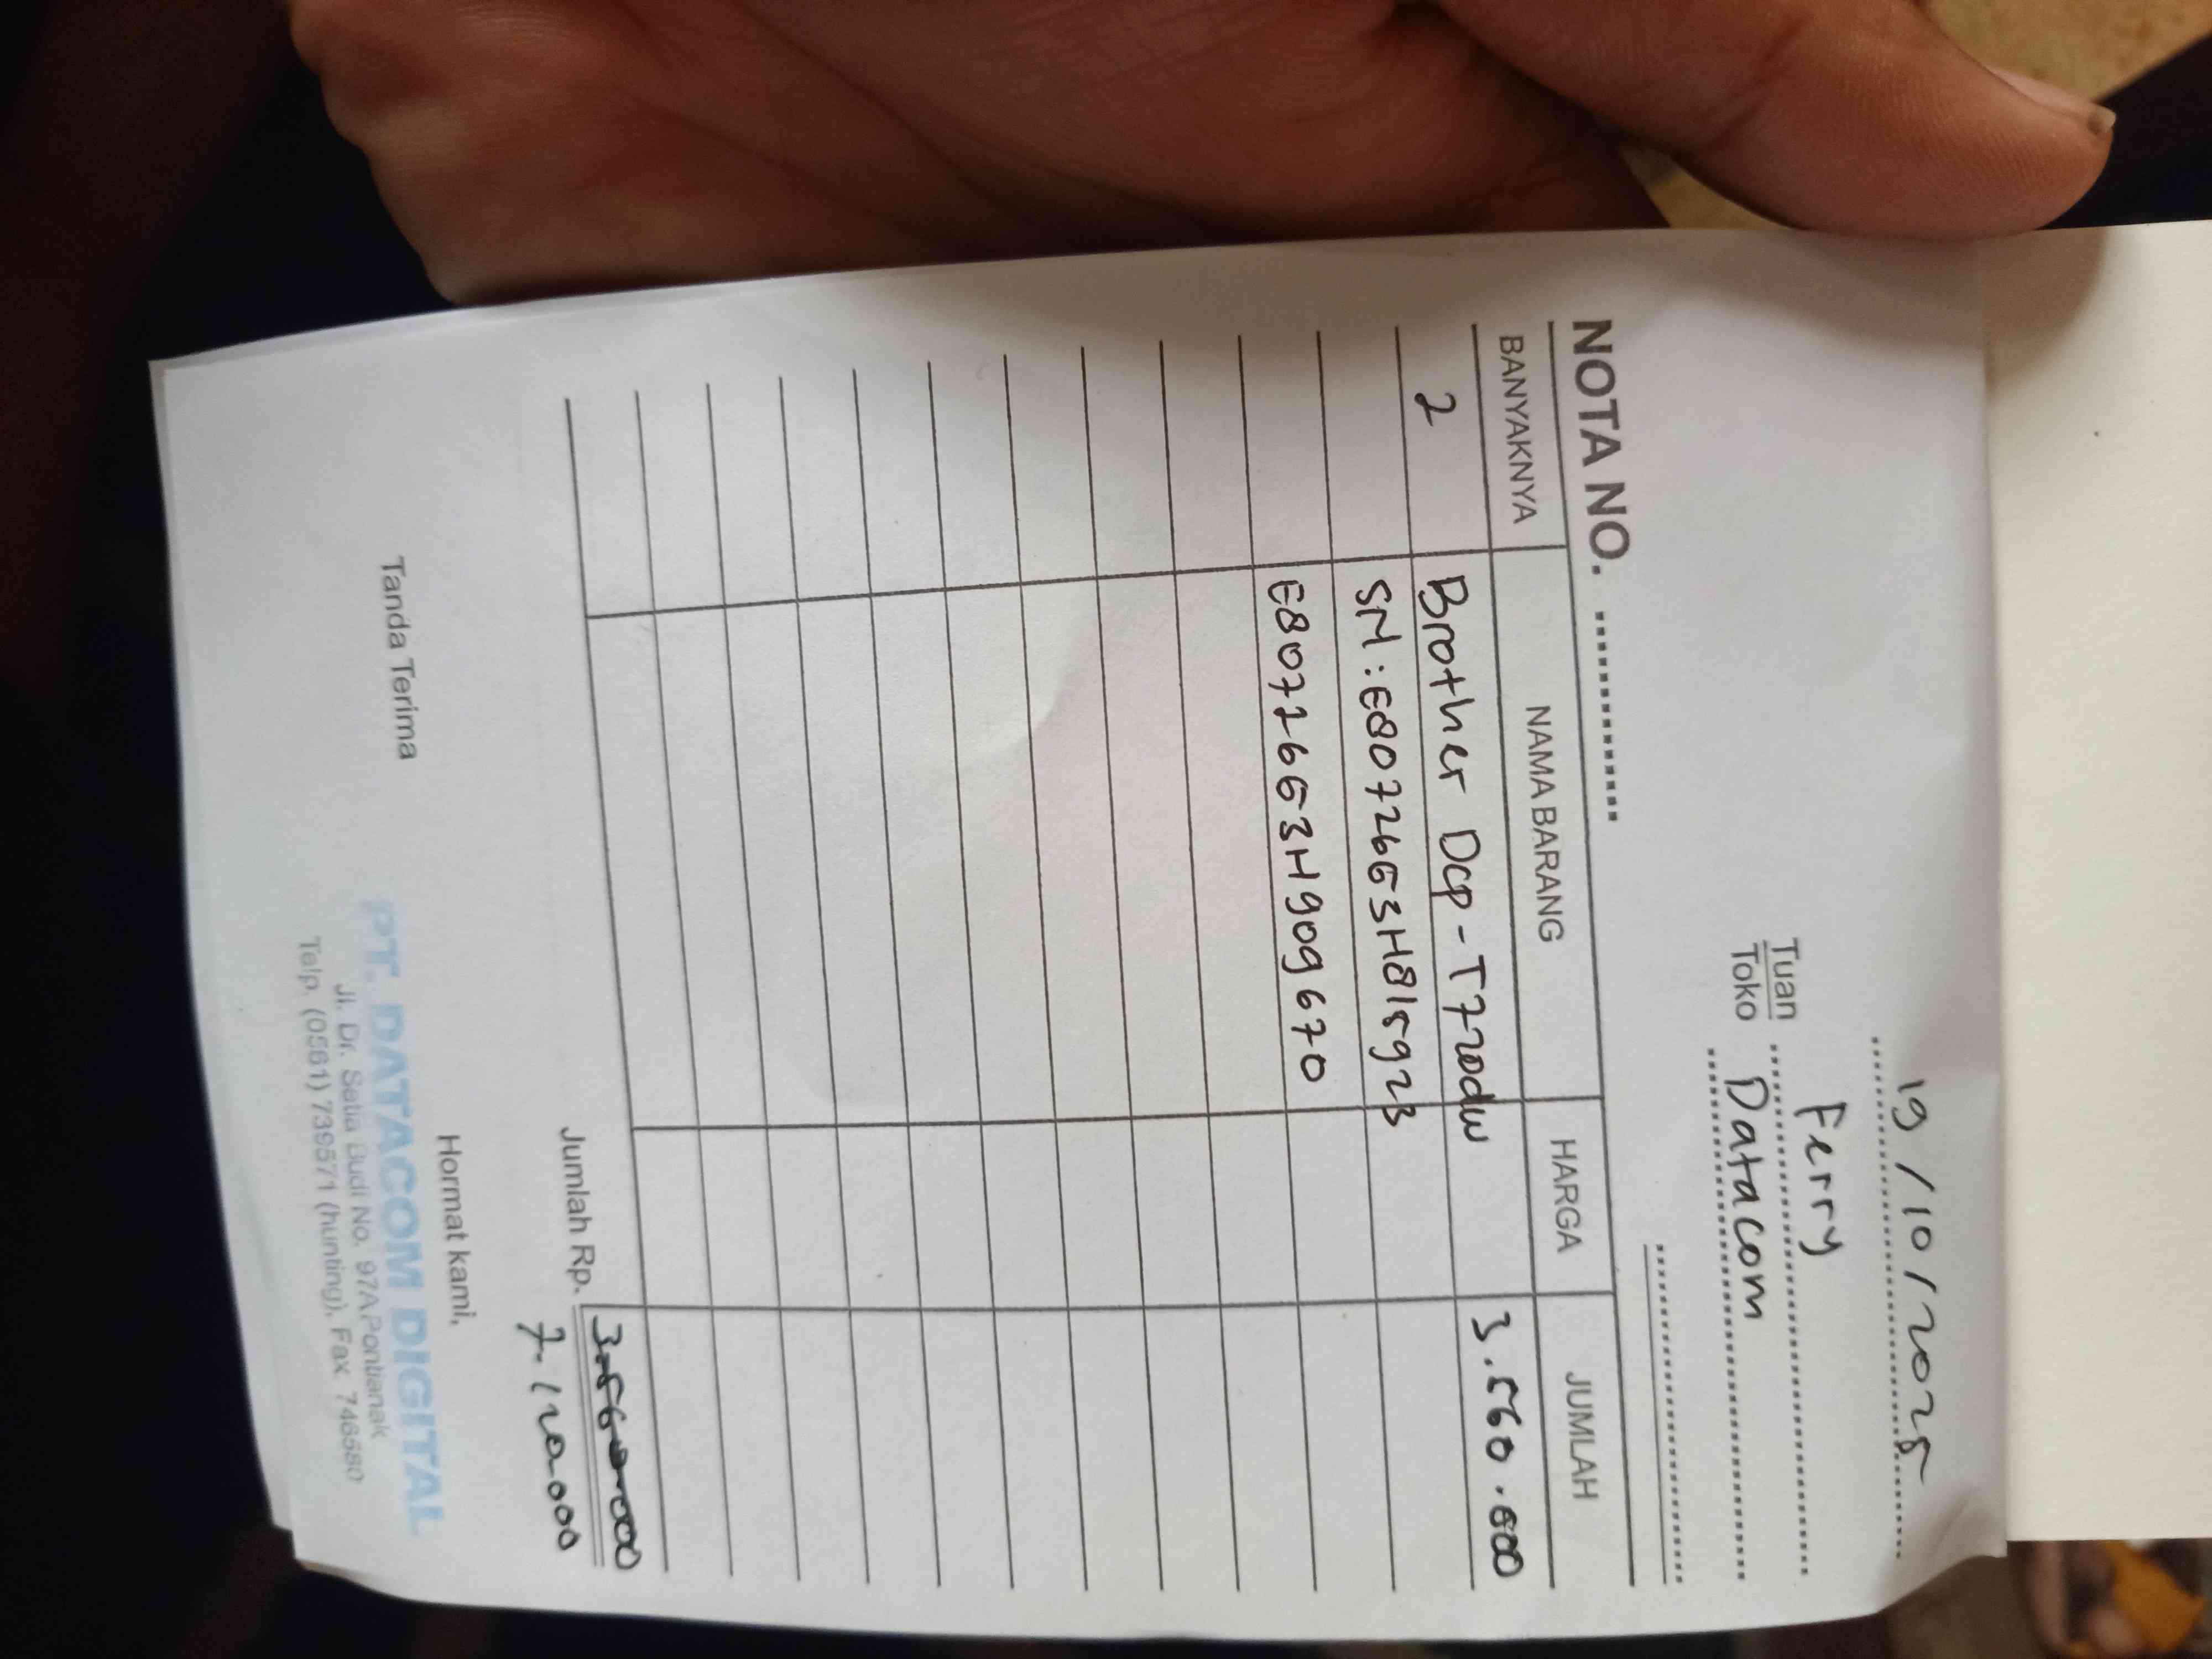 19/10/2025
Tuan Ferry
Toko Datacom
NOTA NO. ............
BANYAKNYA NAMA BARANG HARGA JUMLAH
2 Brother Dcp-T720dw 3.560.000
SN: E80726G53H815923
E80726G53H909670
Jumlah Rp. 3.560.000
7.120.000
Tanda Terima Hormat kami,
PT. DATACOM DIGITAL
Jl. Dr. Setia Budi No. 97A Pontianak
Telp. (0561) 739571 (hunting), Fax. 746580